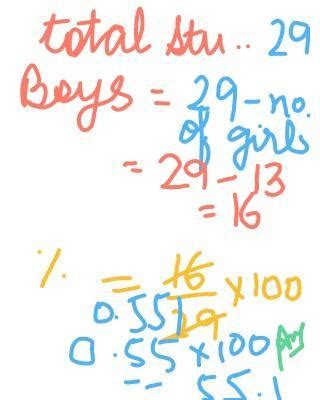 total stu.. 29
Boys = 29 - no.
of girls
= 29 - 13
= 16
% = 16/29 x 100
0.551
0.55 x 100 Ans
= 55.1